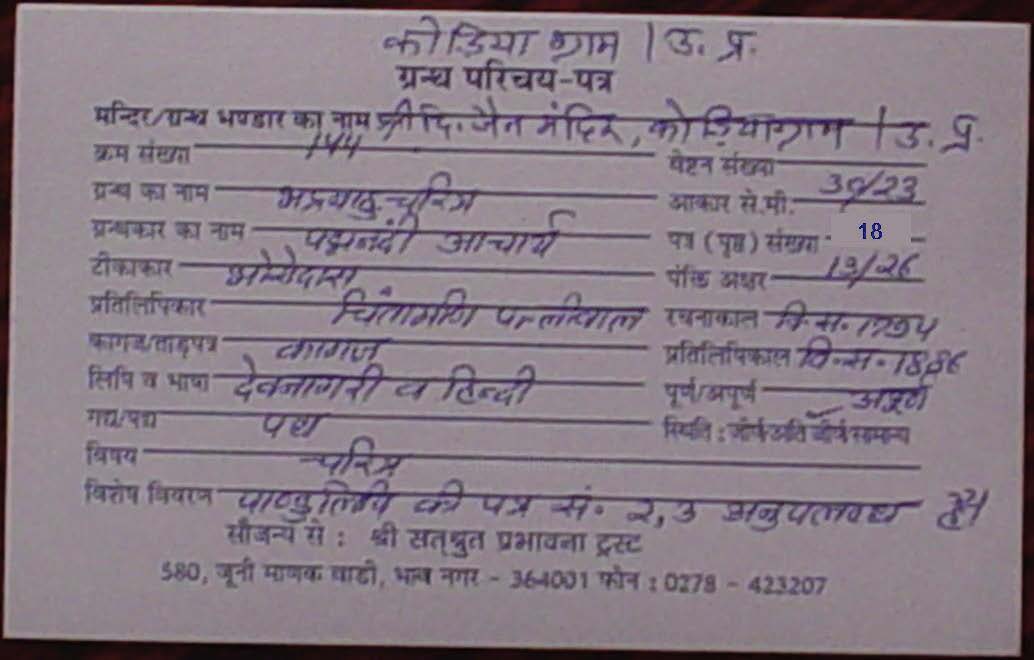 कोडिया ग्राम / उ. प्र.
ग्रन्थ परिचय-पत्र
मन्दिर/ग्रन्थ भण्डार का नाम श्री दि. जैन मंदिर, कोडियाग्राम / उ. प्र.
क्रम संख्या 144 वेष्टन संख्या
ग्रन्थ का नाम भद्रबाहु चरित्र आकार से.मी. 30/23
ग्रन्थकार का नाम पद्मनंदी आचार्य पत्र (पृष्ठ) संख्या 18
टीकाकार पंक्ति अक्षर 13/26
प्रतिलिपिकार चिंतामणि पल्लीवाल रचनाकाल वि.स.
कागज/ताड़पत्र कागज प्रतिलिपिकाल वि.स.
लिपि व भाषा देवनागरी व हिन्दी पूर्ण/अपूर्ण अपूर्ण
गद्य/पद्य पद्य स्थिति : जीर्ण/अति जीर्ण/सामान्य
विषय चरित्र
विशेष विवरण पाण्डुलिपि की पत्र सं. २,३ अनुपलब्ध है।
सौजन्य से : श्री सत्श्रुत प्रभावना ट्रस्ट
580, जूनी माणक वाडी, भाव नगर - 364001 फोन : 0278 - 423207